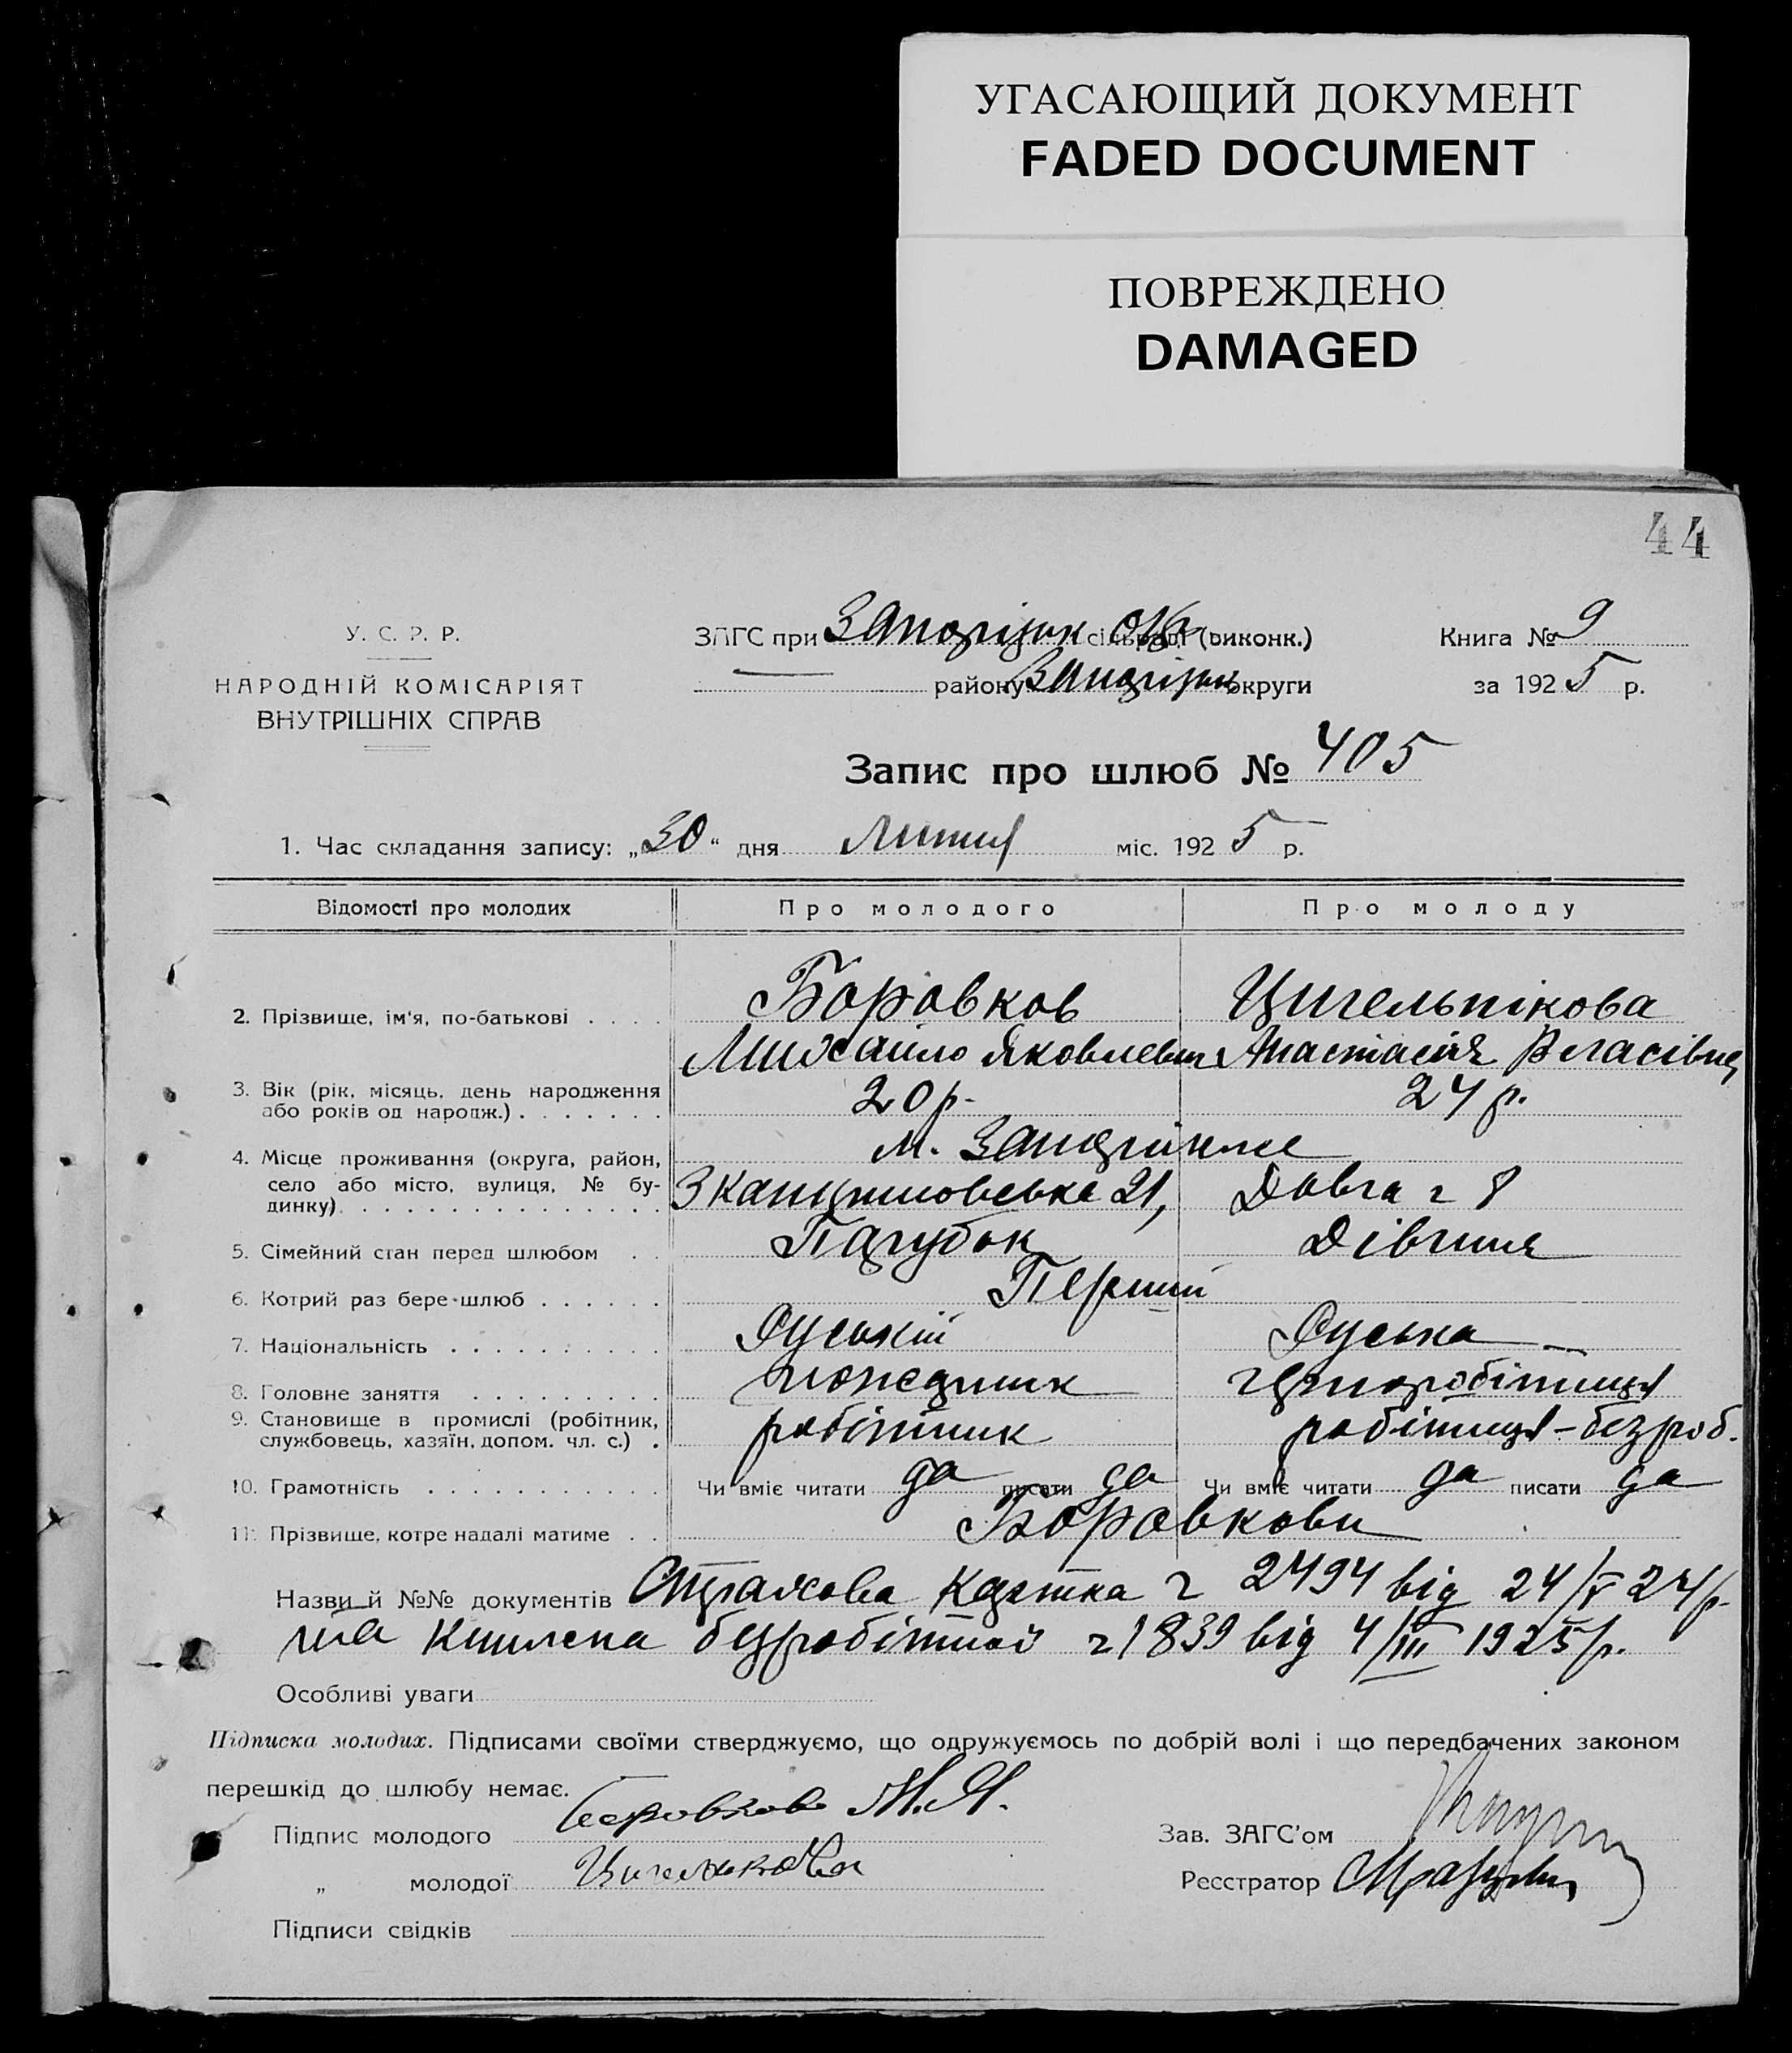 УГАСАЮЩИЙ ДОКУМЕНТ
FADED DOCUMENT
ПОВРЕЖДЕНО
DAMAGED
44
У. С. Р. Р.
НАРОДНІЙ КОМІСАРІЯТ
ВНУТРІШНІХ СПРАВ
ЗАГС при Запоріжськ Окр. сільраді (виконк.)
району Запоріжськ округи
Книга № 9
за 1925 р.
Запис про шлюб № 405
1. Час складання запису: „30“ дня Липня міс. 1925 р.
Відомості про молодих Про молодого Про молоду
2. Прізвище, ім'я, по-батькові . . . . Боровков Цигельнікова
Михайло Яковлевич Анастасія Власівна
3. Вік (рік, місяць, день народження
або років од народж.) . . . . . . . 20 р. 24 р.
4. Місце проживання (округа, район,
село або місто, вулиця, № бу-
динку) м. Запоріжжє
21, Довга ч 8
5. Сімейний стан перед шлюбом . . Парубок Дівчина
6. Котрий раз бере шлюб . . . . . . Перший
7. Національність . . . . . . . . . . Руський Руська
8. Головне заняття . . . . . . . . . пожарник чорноробітниця
9. Становище в промислі (робітник,
службовець, хазяїн, допом. чл. с.) . робітник робітниця - безроб.
10. Грамотність . . . . . . . . . . . Чи вміє читати да писати да Чи вміє читати да писати да
11. Прізвище, котре надалі матиме . . Боровкови
Назви й №№ документів Страхова картка ч 2494 від 24/V 24 р.
та безробітної ч 1839 від 4/III 1925 р.
Особливі уваги
Підписка молодих. Підписами своїми стверджуємо, що одружуємось по добрій волі і що передбачених законом
перешкід до шлюбу немає.
Підпис молодого Боровков М. Я.
„ молодої Цигельнікова
Підписи свідків
Зав. ЗАГС'ом
Реєстратор